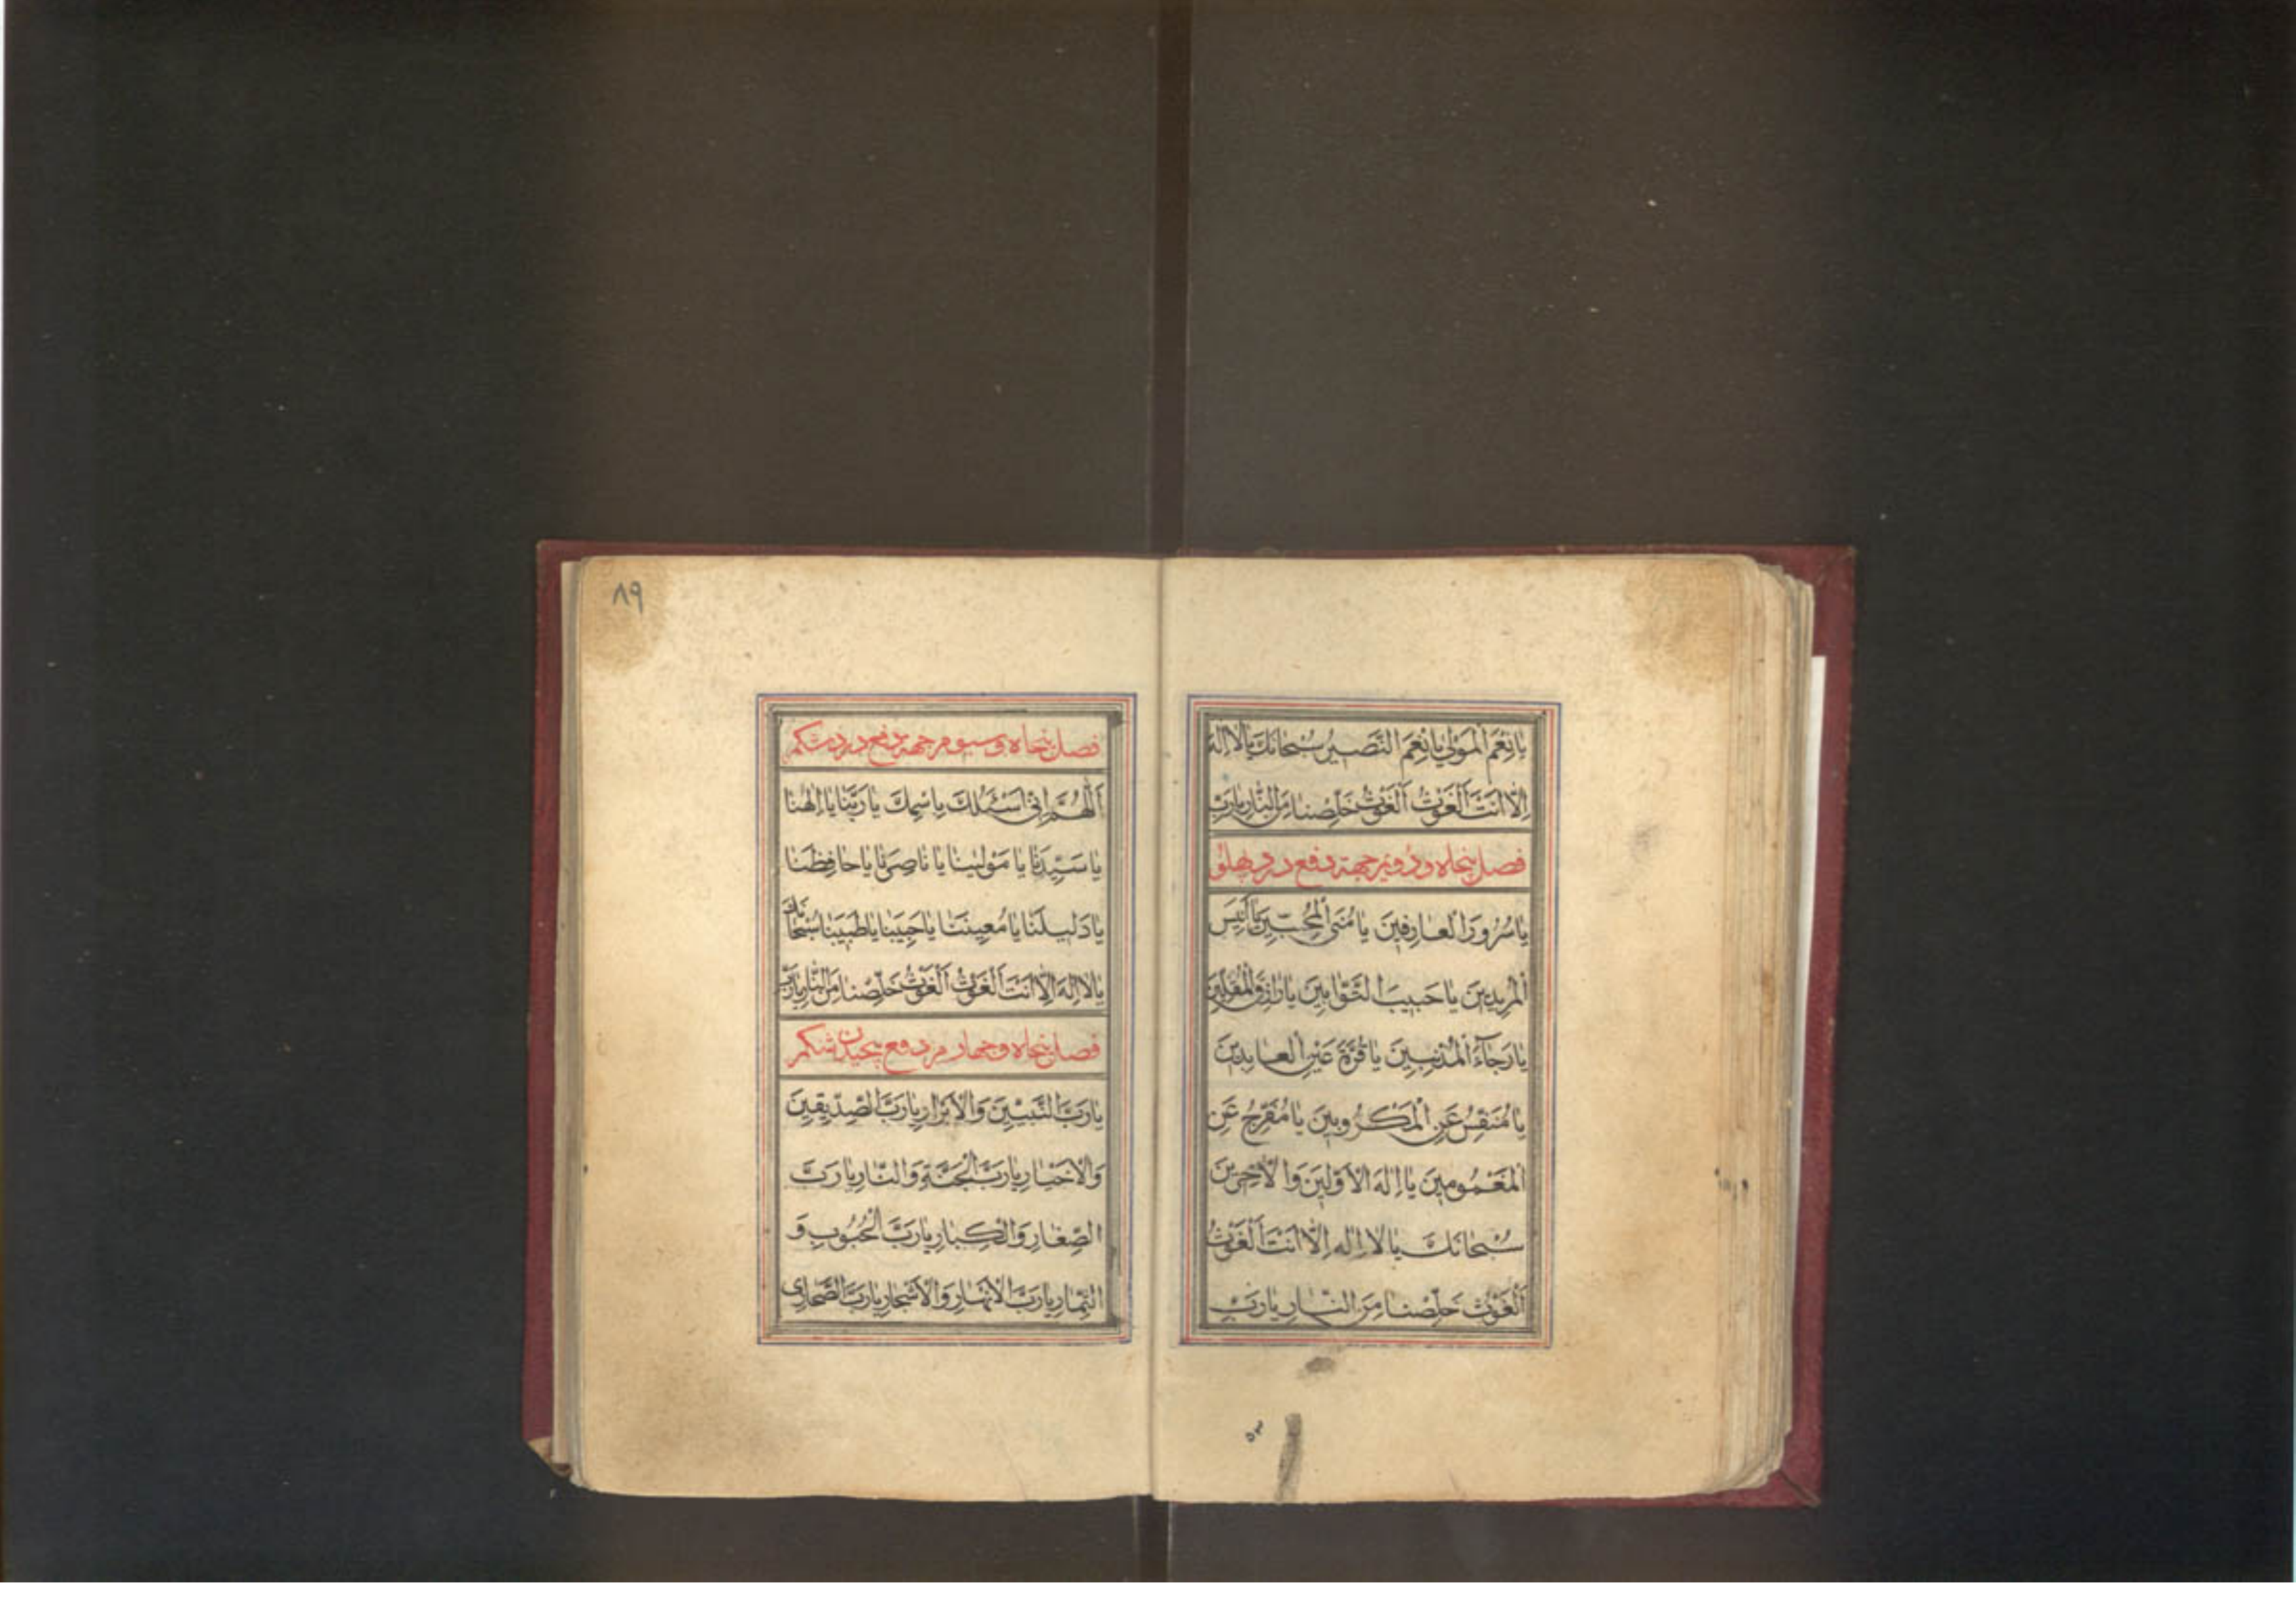 يا نِعْمَ الْمَوْلىٰ يا نِعْمَ النَّصيرُ سُبْحانَكَ يا لا اِلٰهَ
اِلّا اَنْتَ اَلْغَوْثُ اَلْغَوْثُ خَلِّصْنا مِنَ النّارِ يا رَبِّ
فصل پنجاه و دویم جهة دفع درد پهلو
يا سُرُورَ الْعارِفينَ يا مُنَى الْمُحِبّينَ يا اَنيسَ
الْمُريدينَ يا حَبيبَ التَّوّابينَ يا رازِقَ الْمُقِلّينَ
يا رَجاءَ الْمُذْنِبينَ يا قُرَّةَ عَيْنِ الْعابِدينَ
يا مُنَفِّسُ عَنِ الْمَكْرُوبينَ يا مُفَرِّجُ عَنِ
الْمَغْمُومينَ يا اِلٰهَ الْاَوَّلينَ وَالْاٰخِرينَ
سُبْحانَكَ يا لا اِلٰه اِلّا اَنْتَ اَلْغَوْثُ
اَلْغَوْثُ خَلِّصْنا مِنَ النّارِ يا رَبِّ
۵۳
۸۹
فصل پنجاه و سیوم جهة دفع درد شکم
اَللّٰهُمَّ اِنّي اَسْئَلُكَ بِاسْمِكَ يا رَبَّنا يا اِلٰهَنا
يا سَيِّدَنا يا مَوْلينا يا ناصِرَنا يا حافِظَنا
يا دَليلَنا يا مُعينَنا يا حَبيبَنا يا طَبيبَنا سُبْحانَكَ
يا لا اِلٰهَ اِلّا اَنْتَ اَلْغَوْثُ اَلْغَوْثُ خَلِّصْنا مِنَ النّارِ يا رَبِّ
فصل پنجاه و چهارم دفع پیچیدن شکم
يا رَبَّ النَّبيّينَ وَالْاَبْرارِ يا رَبَّ الصِّدّيقينَ
وَالْاَخْيارِ يا رَبَّ الْجَنَّةِ وَالنّارِ يا رَبَّ
الصِّغارِ وَالْكِبارِ يا رَبَّ الْحُبُوبِ وَ
الثِّمارِ يا رَبَّ الْاَنْهارِ وَالْاَشْجارِ يا رَبَّ الصَّحاري